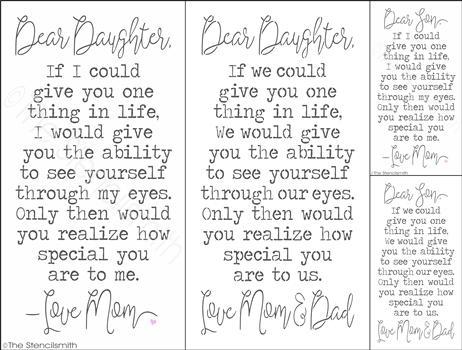 Dear Daughter,
If I could
give you one
thing in life,
I would give
you the ability
to see yourself
through my eyes.
Only then would
you realize how
special you
are to me.
~Love Mom~
Dear Daughter,
If we could
give you one
thing in life,
We would give
you the ability
to see yourself
through our eyes.
Only then would
you realize how
special you
are to us.
Love Mom & Dad
Dear Son,
If I could
give you one
thing in life,
I would give
you the ability
to see yourself
through my eyes.
Only then would
you realize how
special you
are to me.
~Love Mom~
Dear Son,
If we could
give you one
thing in life,
We would give
you the ability
to see yourself
through our eyes.
Only then would
you realize how
special you
are to us.
Love Mom & Dad
©The Stencilsmith